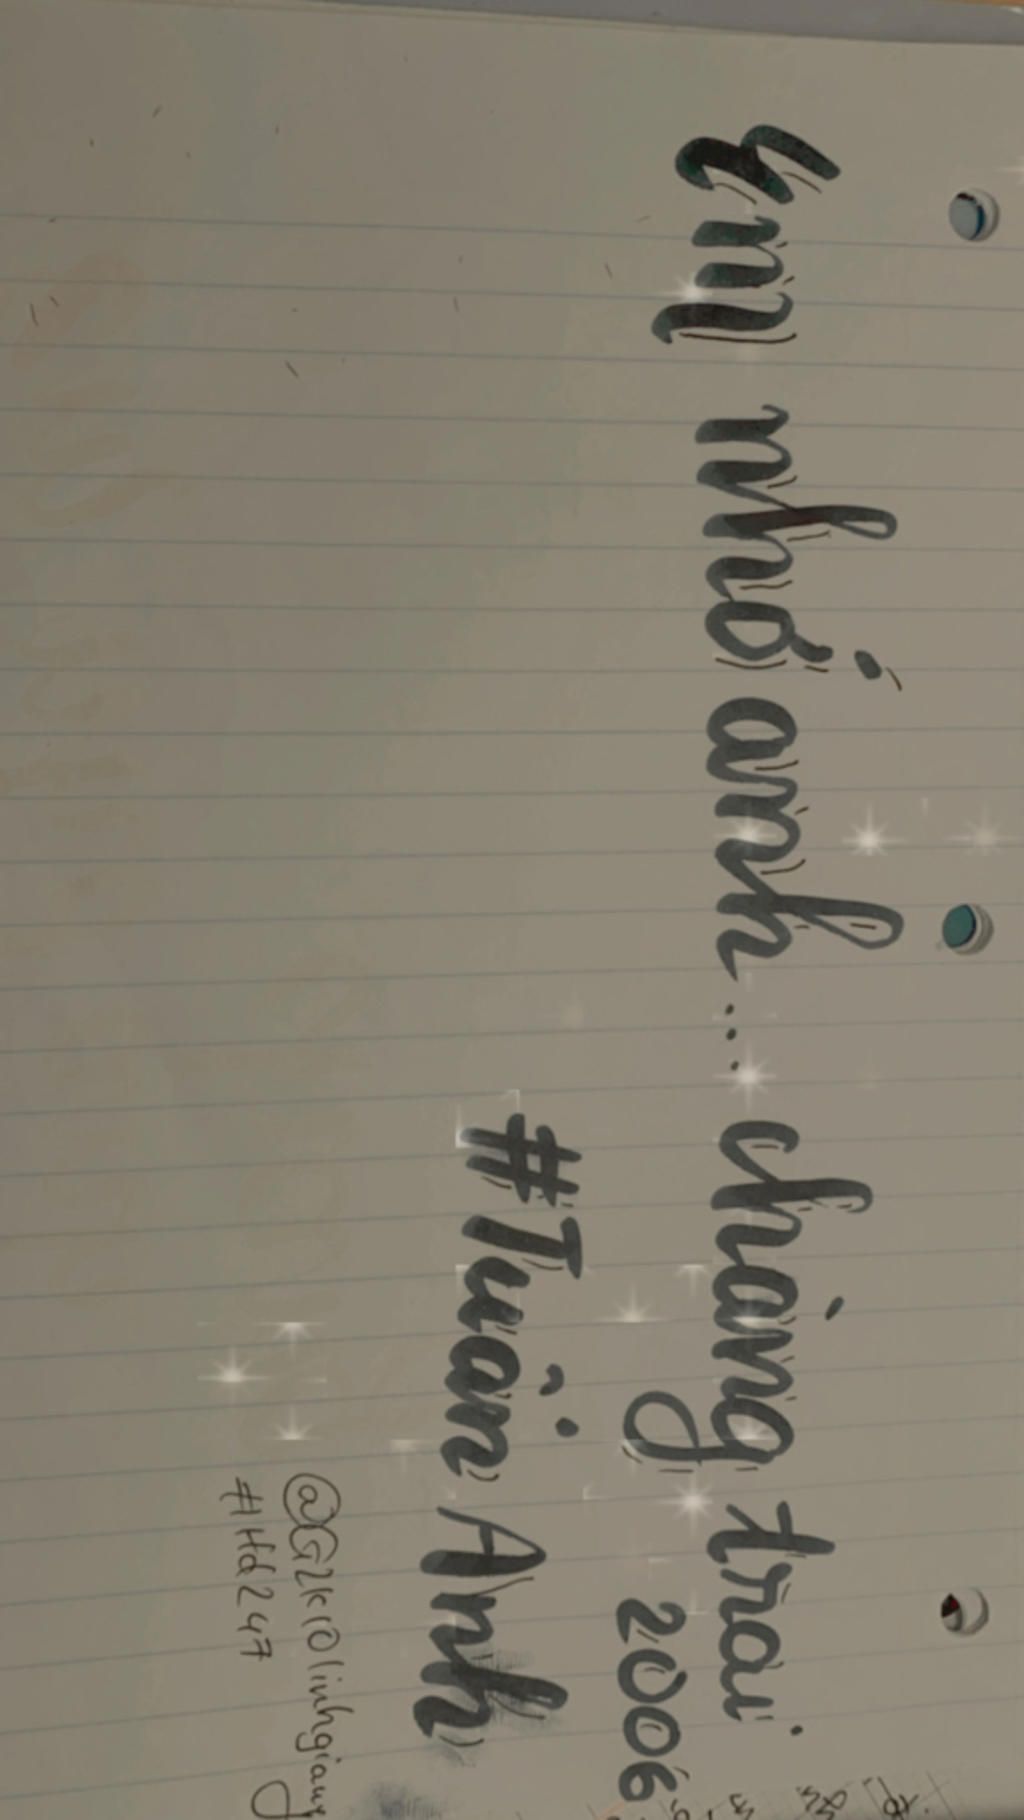 Em nhớ anh... chàng trai
2006
#Tuấn Anh
@G2k10linhgiang
#Hd247